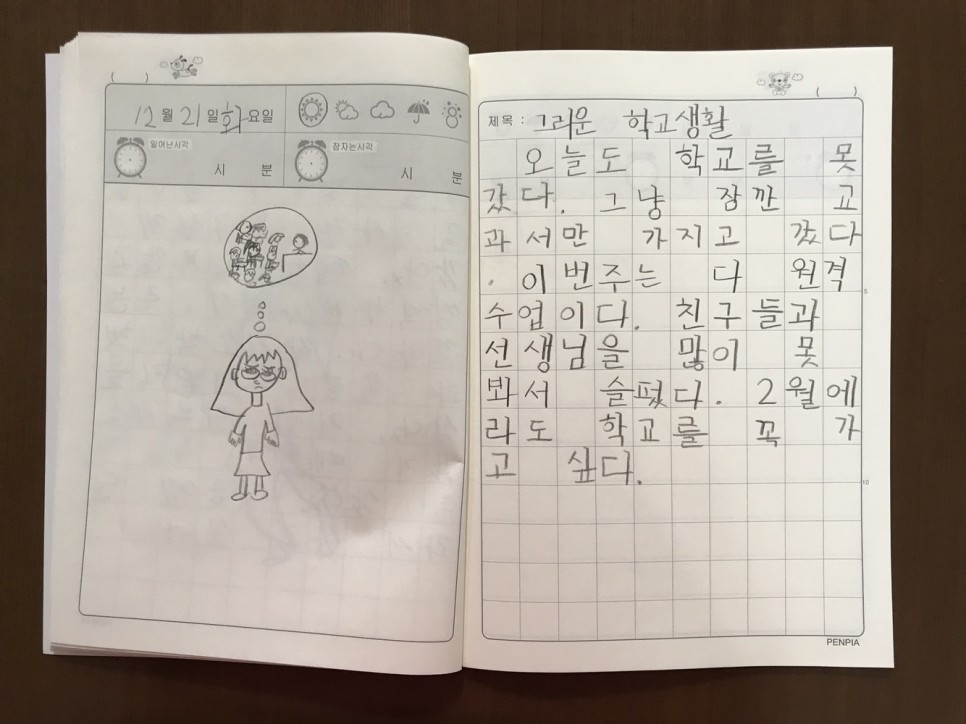 (   )
12월 21일 화요일
일어난시각
시 분
잠자는시각
시 분
(   )
제목 : 그리운 학교생활
오늘도 학교를 못
갔다. 그냥 잠깐 교
과서만 가지고 갔다
. 이번주는 다 원격
수업이다. 친구들과
선생님을 많이 못
봐서 슬펐다. 2월에
라도 학교를 꼭 가
고 싶다.
5
10
PENPIA